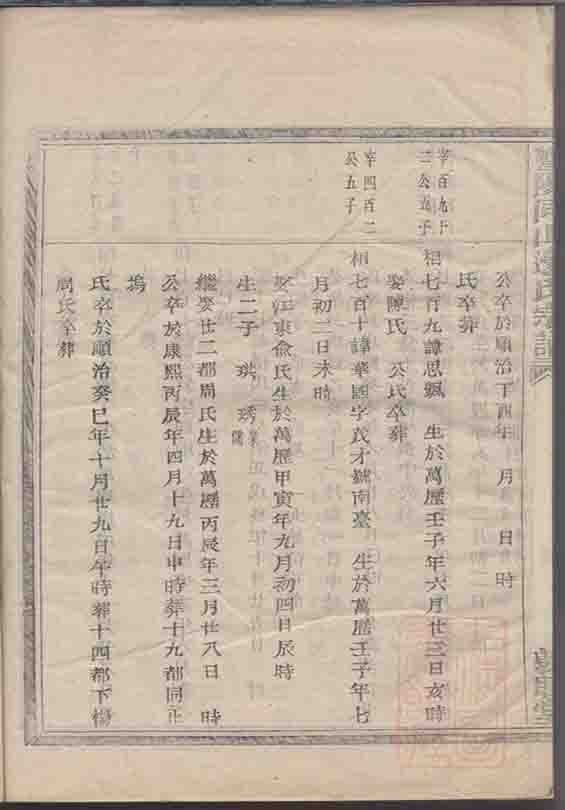 公卒於順治丁酉年　月　日　時
氏卒葬
宰百九十
二公五子
相七百九諱思飄　生於萬歷壬子年六月廿三日亥時
娶陳氏　公氏卒葬
宰四百二
公五子
相七百十諱華國字茂才號南臺　生於萬歷壬子年七
月初二日未時
娶江東俞氏生於萬歷甲寅年九月初四日辰時
生二子　琪　琇
繼娶廿二都周氏生於萬歷丙辰年三月廿八日　時
公卒於康熙丙辰年四月十九日申時葬十九都同正
塢
氏卒於順治癸巳年十月廿九日午時葬十四都下楊
周氏卒葬